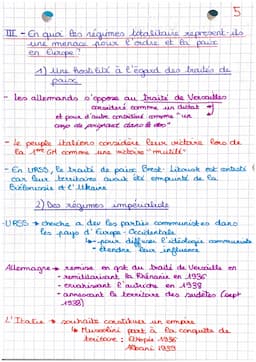 5
III - En quoi les régimes totalitaire représent-ils
une menace pour l'ordre et la paix
en Europe ?
1) Une hostilité à l'égard des traités de
paix
- Les allemands s'oppose au traité de Versailles
considéré comme un diktat
et pour d'autre considéré comme "un
coup de poignard dans le dos"
- Le peuple italiens considère leur victoire lors de
la 1ère GM comme une victoire "mutilé"
- En URSS, le traité de paix Brest-Litovsk est contesté
car leur territoires avait été emputé de la
Biélorussie et l'Ukraine
2) Des régimes impérialiste
- URSS → cherche a dev les parties communistes dans
les pays d'Europe Occidentale
↳ pour diffuser l'idéologie communiste
- étendre leur influence
Allemagne → remise en gst du traité de Versailles en
- remilitarisant la Rhénanie en 1936
- envahissant l'autriche en 1938
- annexant le territoire des sudètes (sept
1938)
L'Italie → souhaite constituer un empire
↳ Mussolini part à la conquête de
territoire : Ethiopie 1936
Albani 1939